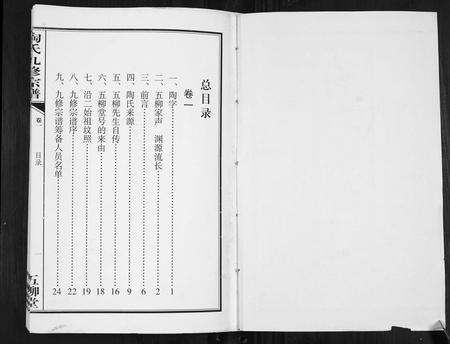 总目录
卷一
一、陶字……1
二、五柳家声 渊源流长……2
三、前言……6
四、陶氏来源……9
五、五柳先生自传……16
六、五柳堂号的来由……18
七、沿二始祖坟照……19
八、九修宗谱序……22
九、九修宗谱筹备人员名单……24
陶氏九修宗谱
卷一
目录
一
五柳堂